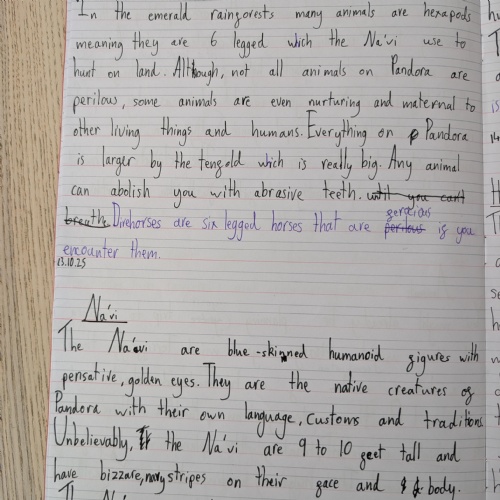 In the emerald raingorests many animals are hexapods
meaning they are 6 legged which the Na'vi use to
hunt on land. Although, not all animals on Pandora are
perilous, some animals are even nurturing and maternal to
other living things and humans. Everything on Pandora
is larger by the tengold which is really big. Any animal
can abolish you with abrasive teeth. until you can't
breathe Direhorses are six legged horses that are perilous gerocious ig you
encounter them.
13.10.25
Na'vi
The Na'vi are blue-skinned humanoid gigures with
pensative, golden eyes. They are the native creatures og
Pandora with their own language, customs and traditions
Unbelievably, the Na'vi are 9 to 10 geet tall and
have bizzare, navy stripes on their gace and body.
The Na'vi